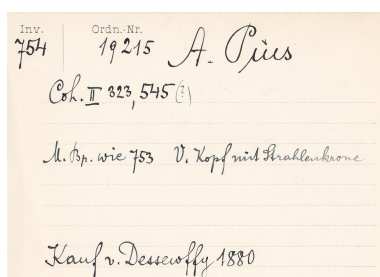 Inv. Ordn.-Nr.
754 19215 A. Pius
Coh. II 323, 545 (?)
M. Br. wie 753 V. Kopf mit Strahlenkrone
Kauf v. Dessewffy 1880